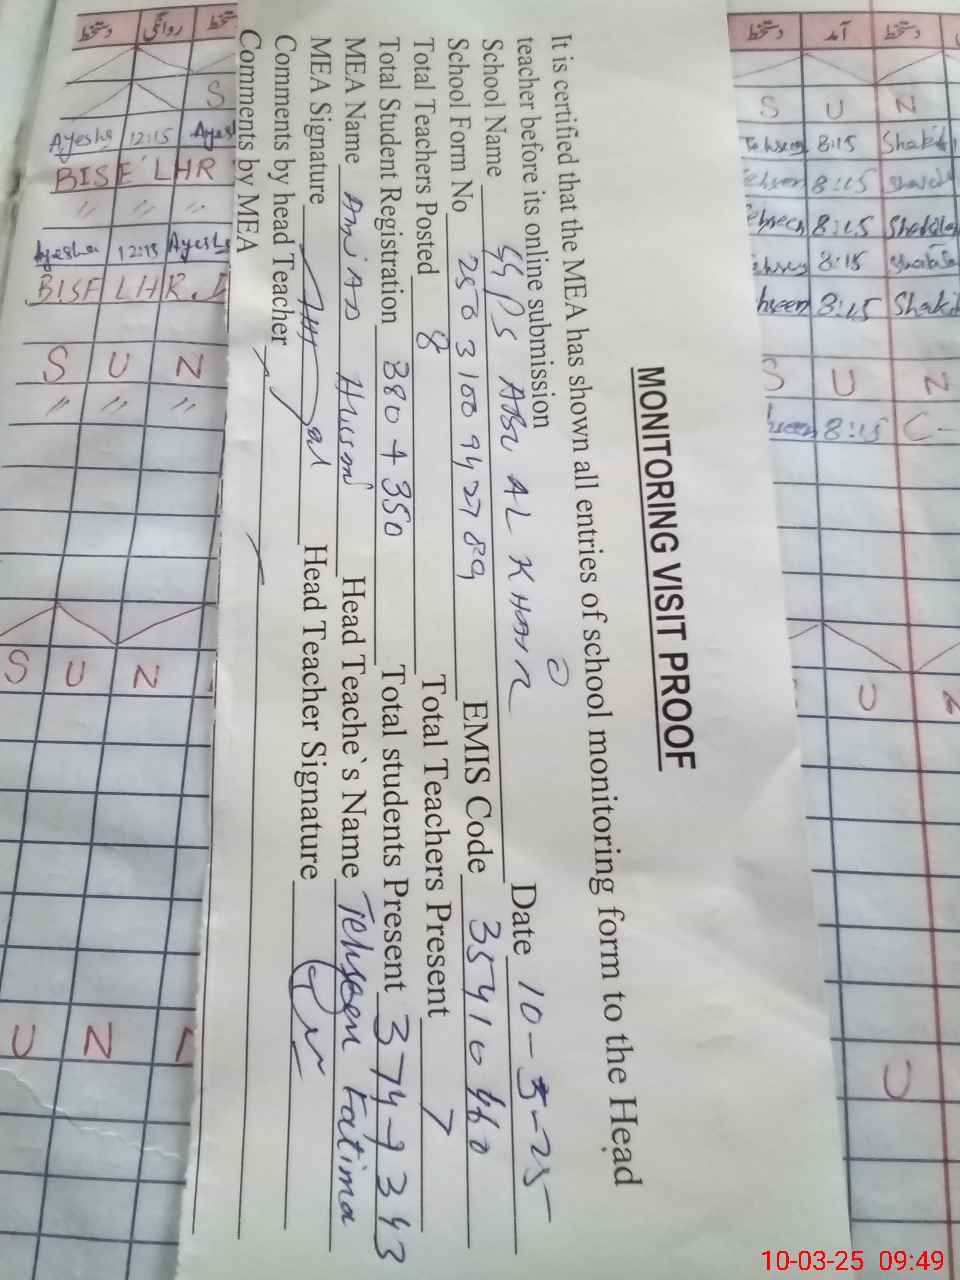 MONITORING VISIT PROOF
It is certified that the MEA has shown all entries of school monitoring form to the Head
teacher before its online submission
Date 10-3-25
School Name GGPS ABU AL KHAIR
School Form No 2503100942789 EMIS Code 35410460
Total Teachers Posted 8 Total Teachers Present 7
Total Student Registration 380 + 350 Total students Present 374 + 343
MEA Name Amjad Hussain Head Teache`s Name Tehseen Fatima
MEA Signature Head Teacher Signature
Comments by head Teacher
Comments by MEA
دستخط روانگی دستخط
S
Ayesha 12:15 Ayesha
BISE LHR
〃 〃
Ayesha 12:15 Ayesha
BISE LHR
S U N
〃 〃 〃
S U N
U N
دستخط آمد دستخط
S U N
Tehseen 8:15 Shakila
Tehseen 8:15
Tehseen 8:15 Shakila
Tehseen 8:15 Shakila
Tehseen 8:15 Shakila
S U N
Tehseen 8:15 C-
U
U
10-03-25 09:49